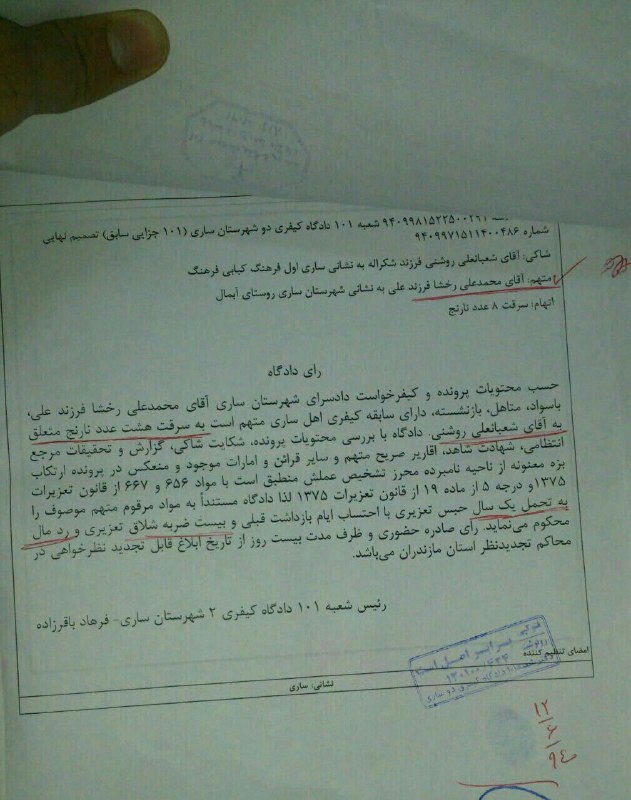 ۹۴۰۹۹۸۱۵۲۲۵۰۰۲۶۱ شعبه ۱۰۱ دادگاه کیفری دو شهرستان ساری (۱۰۱ جزایی سابق) تصمیم نهایی
شماره ۹۴۰۹۹۷۱۵۱۱۴۰۰۴۸۶
شاکی: آقای شعبانعلی روشنی فرزند شکراله به نشانی ساری اول فرهنگ کبابی فرهنگ
متهم: آقای محمدعلی رخشا فرزند علی به نشانی شهرستان ساری روستای آبمال
اتهام: سرقت ۸ عدد نارنج
رای دادگاه
حسب محتویات پرونده و کیفرخواست دادسرای شهرستان ساری آقای محمدعلی رخشا فرزند علی،
باسواد، متاهل، بازنشسته، دارای سابقه کیفری اهل ساری متهم است به سرقت هشت عدد نارنج متعلق
به آقای شعبانعلی روشنی. دادگاه با بررسی محتویات پرونده، شکایت شاکی، گزارش و تحقیقات مرجع
انتظامی، شهادت شاهد، اقاریر صریح متهم و سایر قرائن و امارات موجود و منعکس در پرونده ارتکاب
بزه معنونه از ناحیه نامبرده محرز تشخیص عملش منطبق است با مواد ۶۵۶ و ۶۶۷ از قانون تعزیرات
۱۳۷۵و درجه ۵ از ماده ۱۹ از قانون تعزیرات ۱۳۷۵ لذا دادگاه مستنداً به مواد مرقوم متهم موصوف را
به تحمل یک سال حبس تعزیری با احتساب ایام بازداشت قبلی و بیست ضربه شلاق تعزیری و رد مال
محکوم می‌نماید. رأی صادره حضوری و ظرف مدت بیست روز از تاریخ ابلاغ قابل تجدید نظرخواهی در
محاکم تجدیدنظر استان مازندران می‌باشد.
رئیس شعبه ۱۰۱ دادگاه کیفری ۲ شهرستان ساری- فرهاد باقرزاده
امضای تنظیم کننده
رونوشت برابر اصل است
نشانی: ساری
۱۲/۶/۹۴